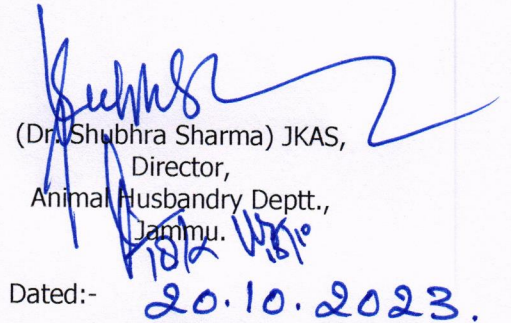 (Dr. Shubhra Sharma) JKAS,
Director,
Animal Husbandry Deptt.,
Jammu.
Dated:- 20.10.2023.